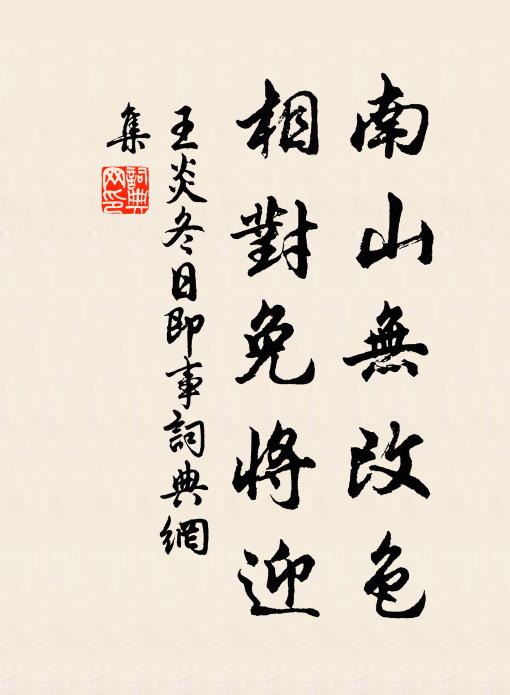 南山無改色
相對免將迎
王炎冬日即事詞典網
集
詞典
网印